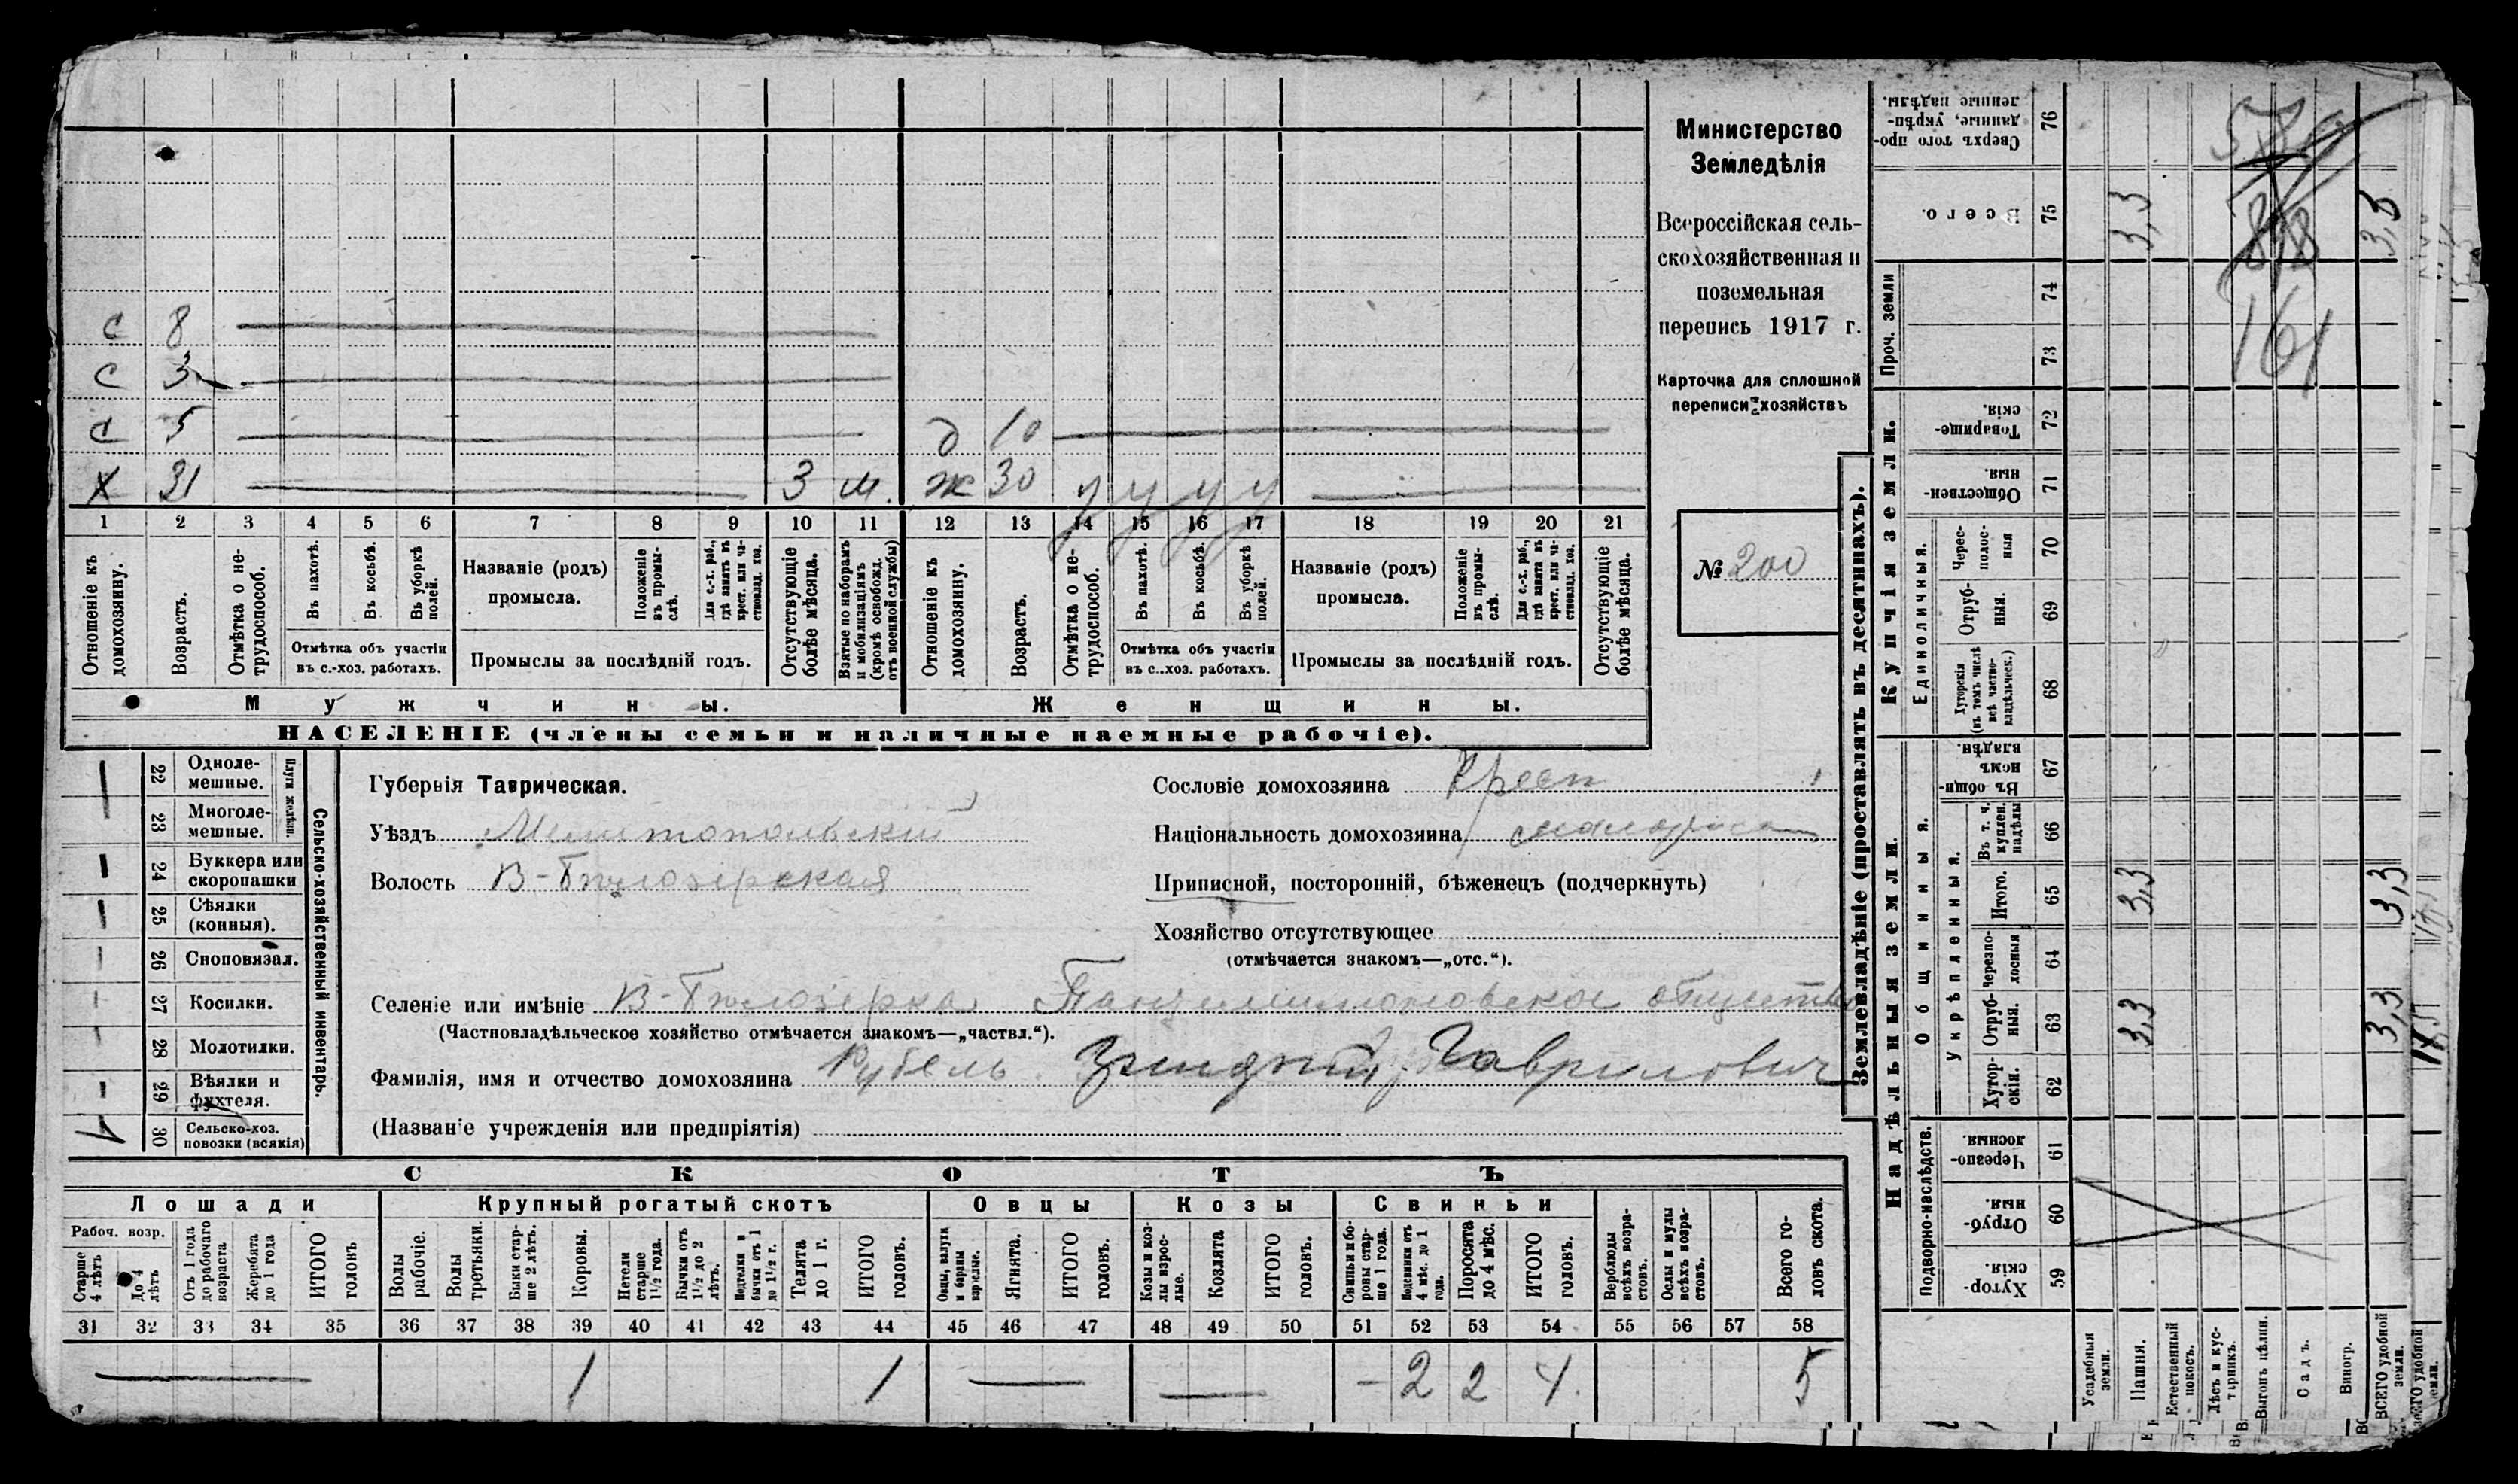 Министерство
Земледѣлія
Всероссійская сель-
скохозяйственная и
поземельная
перепись 1917 г.
Карточка для сплошной
переписи хозяйствъ
№ 200
с 8
с 3
с 5 д 10
х 31 3 м. ж 30 у у у у
1 2 3 4 5 6 7 8 9 10 11 12 13 14 15 16 17 18 19 20 21
Отношеніе къ домохозяину.
Возрастъ.
Отмѣтка о не-трудоспособ.
Въ пахотѣ.
Въ косьбѣ.
Въ уборкѣ полей.
Отмѣтка объ участіи
въ с.-хоз. работахъ.
Названіе (родъ)
промысла.
Положеніе въ промы-слѣ.
Для с.-х. раб., гдѣ занятъ въ крест. или ча-стновлад. хоз.
Промыслы за послѣдній годъ.
Отсутствующіе болѣе мѣсяца.
Взятые по наборамъ и мобилизаціямъ (кромѣ освобожд. отъ военной службы)
Отношеніе къ домохозяину.
Возрастъ.
Отмѣтка о не-трудоспособ.
Въ пахотѣ.
Въ косьбѣ.
Въ уборкѣ полей.
Отмѣтка объ участіи
въ с..хоз. работахъ.
Названіе (родъ)
промысла.
Положеніе въ промы-слѣ.
Для с.-х. раб., гдѣ занята въ крест. или ча-стновлад. хоз.
Промыслы за послѣдній годъ.
Отсутствующіе болѣе мѣсяца.
Мужчины. Женщины.
НАСЕЛЕНІЕ (члены семьи и наличные наемные рабочіе).
Сельско-хозяйственный инвентарь.
Плуги желѣзн.
22 Одноле-мешные.
23 Многоле-мешные.
24 Буккера или скоропашки
25 Сѣялки (конныя).
26 Сноповязал.
27 Косилки.
28 Молотилки.
29 Вѣялки и фухтеля.
30 Сельско-хоз. повозки (всякія)
Губернія Таврическая.
Уѣздъ Мелитопольский
Волость В-Бѣлозерская
Сословіе домохозяина Крест
Національность домохозяина малоросс
Приписной, посторонній, бѣженецъ (подчеркнуть)
Хозяйство отсутствующее
(отмѣчается знакомъ—„отс.“).
Селеніе или имѣніе В-Бѣлозерка общество
(Частновладѣльческое хозяйство отмѣчается знакомъ—„частвл.“).
Фамилія, имя и отчество домохозяина Рубель Гаврилович
(Названіе учрежденія или предпріятія)
СКОТЪ
Лошади Крупный рогатый скотъ Овцы Козы Свиньи
Рабоч. возр.
Старше 4 лѣтъ
До 4 лѣтъ
Отъ 1 года до рабочаго возраста
Жеребята до 1 года
ИТОГО головъ
Волы рабочіе.
Волы третьяки.
Быки стар-ше 2 лѣтъ.
Коровы.
Нетели старше 1½ года.
Бычки отъ 1½ до 2 лѣтъ.
Подтелки и бычки отъ 1 до 1½ г.
Телята до 1 г.
ИТОГО головъ.
Овцы, валухи и бараны взрослые.
Ягнята.
ИТОГО головъ.
Козы и коз-лы взрос-лые.
Козлята
ИТОГО головъ.
Свиньи и бо-ровы стар-ше 1 года.
Подсвинки отъ 4 мѣс. до 1 года.
Поросята до 4 мѣс.
ИТОГО головъ.
Верблюды всѣхъ возра-стовъ.
Ослы и мулы всѣхъ возра-стовъ.
Всего го-ловъ скота.
31 32 33 34 35 36 37 38 39 40 41 42 43 44 45 46 47 48 49 50 51 52 53 54 55 56 57 58
1 1 2 2 4 5
Землевладѣніе (проставлять въ десятинахъ).
Надѣльныя земли. Купчія земли. Проч. земли
Подворно-наслѣдств.
Общинныя.
Укрѣпленныя.
Единоличныя.
Хутор-скія. 59
Отруб-ныя. 60
Черезпо-лосныя. 61
Хутор-скія. 62
Отруб-ныя. 63
Черезпо-лосныя 64
Итого. 65
Въ т. ч. куплен. надѣлы 66
Въ общин-номъ владѣн. 67
Хуторскія (въ томъ числѣ всѣ частно-владѣльческ.) 68
Отруб-ныя. 69
Черес-полос-ныя 70
Обществен-ныя. 71
Товарище-скія. 72
73
74
Всего. 75
Сверхъ того про-данные, укрѣп-ленные надѣлы. 76
Усадебныя земли.
Пашня. 3,3 3,3 3,3
Естественный покосъ.
Лѣсъ и кус-тарникъ.
Выгонъ цѣлин.
Садъ.
Виногр.
ВСЕГО удобной земли. 3,3 3,3 3,3
161